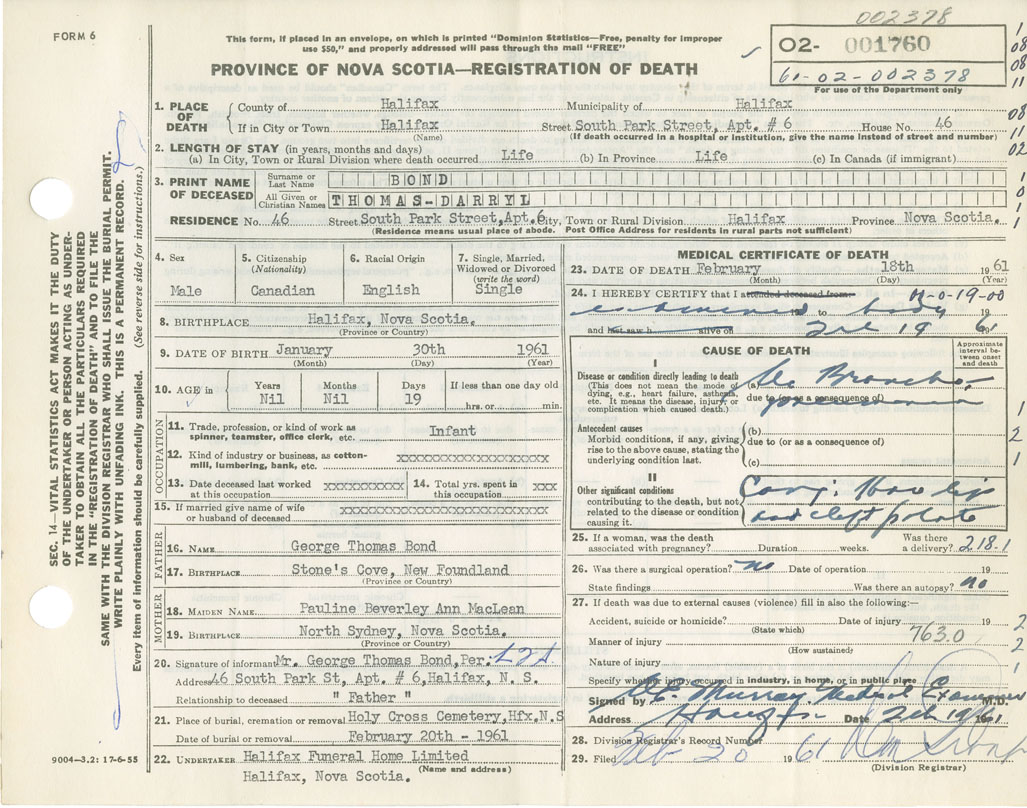 002378
FORM 6
This form, if placed in an envelope, on which is printed "Dominion Statistics—Free, penalty for improper
use $50," and properly addressed will pass through the mail "FREE"
PROVINCE OF NOVA SCOTIA—REGISTRATION OF DEATH
02- 001760
61-02-002378
For use of the Department only
1. PLACE OF DEATH
County of Halifax Municipality of Halifax
If in City or Town Halifax Street South Park Street, Apt. # 6 House No. 46
(Name) (If death occurred in a hospital or institution, give the name instead of street and number)
2. LENGTH OF STAY (in years, months and days)
(a) In City, Town or Rural Division where death occurred Life (b) In Province Life (c) In Canada (if immigrant)
3. PRINT NAME OF DECEASED
Surname or Last Name BOND
All Given or Christian Names THOMAS-DARRYL
RESIDENCE No. 46 Street South Park Street, Apt. 6 City, Town or Rural Division Halifax Province Nova Scotia.
(Residence means usual place of abode. Post Office Address for residents in rural parts not sufficient)
4. Sex
Male
5. Citizenship
(Nationality)
Canadian
6. Racial Origin
English
7. Single, Married,
Widowed or Divorced
(write the word)
Single
8. BIRTHPLACE Halifax, Nova Scotia.
(Province or Country)
9. DATE OF BIRTH January 30th 1961
(Month) (Day) (Year)
10. AGE in
Years Months Days If less than one day old
Nil Nil 19 hrs. or min.
OCCUPATION
11. Trade, profession, or kind of work as
spinner, teamster, office clerk, etc. Infant
12. Kind of industry or business, as cotton-
mill, lumbering, bank, etc. xxxxxxxxxxxxxxxxxxxxxxxx
13. Date deceased last worked
at this occupation xxxxxxxxxxx
14. Total yrs. spent in
this occupation xxx
15. If married give name of wife
or husband of deceased xxxxxxxxxxxxxxxxxxxxxxxx
FATHER
16. NAME George Thomas Bond
17. BIRTHPLACE Stone's Cove, New Foundland
(Province or Country)
MOTHER
18. MAIDEN NAME Pauline Beverley Ann MacLean
19. BIRTHPLACE North Sydney, Nova Scotia.
(Province or Country)
20. Signature of informant Mr. George Thomas Bond, Per:
Address 46 South Park St, Apt. # 6, Halifax, N. S.
Relationship to deceased " Father "
21. Place of burial, cremation or removal Holy Cross Cemetery, Hfx, N.S
Date of burial or removal February 20th - 1961
22. UNDERTAKER Halifax Funeral Home Limited
(Name and address)
Halifax, Nova Scotia.
MEDICAL CERTIFICATE OF DEATH
23. DATE OF DEATH February 18th 1961
(Month) (Day) (Year)
24. I HEREBY CERTIFY that I attended deceased from: 11-0-19-00
examined 19 to body 19
and last saw h alive on Feb 19 1961
CAUSE OF DEATH
Approximate
interval be-
tween onset
and death
I
Disease or condition directly leading to death
(This does not mean the mode of
dying, e.g., heart failure, asthenia,
etc. It means the disease, injury or
complication which caused death.)
(a) Broncho
due to (or as a consequence of)
pneumonia
Antecedent causes
Morbid conditions, if any, giving
rise to the above cause, stating the
underlying condition last.
(b)
due to (or as a consequence of)
(c)
II
Other significant conditions
contributing to the death, but not
related to the disease or condition
causing it.
Cong: Hare lip
and cleft palate
25. If a woman, was the death
associated with pregnancy? Duration weeks. Was there
a delivery? 218.1
26. Was there a surgical operation? no Date of operation 19
State findings Was there an autopsy? no
27. If death was due to external causes (violence) fill in also the following:—
Accident, suicide or homicide? Date of injury 19
(State which)
763.0
Manner of injury
(How sustained)
Nature of injury
Specify whether injury occurred in industry, in home, or in public place
Signed by Murray Medical Examiner M.D.
Address Date Feb 19 1961
28. Division Registrar's Record Number
29. Filed Feb 20 1961
(Division Registrar)
SEC. 14—VITAL STATISTICS ACT MAKES IT THE DUTY
OF THE UNDERTAKER OR PERSON ACTING AS UNDER-
TAKER TO OBTAIN ALL THE PARTICULARS REQUIRED
IN THE "REGISTRATION OF DEATH" AND TO FILE THE
SAME WITH THE DIVISION REGISTRAR WHO SHALL ISSUE THE BURIAL PERMIT.
WRITE PLAINLY WITH UNFADING INK. THIS IS A PERMANENT RECORD.
Every item of information should be carefully supplied. (See reverse side for instructions.)
9004—3.2: 17-6-55